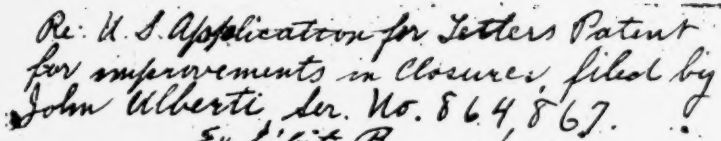 Re: U.S. Application for Letters Patent
for improvements in Closures, filed by
John Ulberti, Ser. No. 864,867.